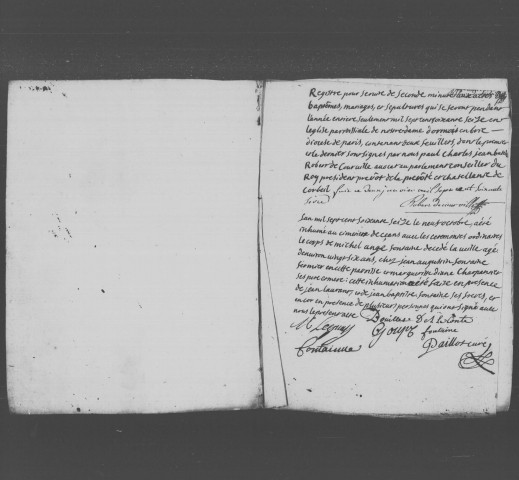 Registre pour servir de seconde minute aux actes de
baptêmes, mariages, et sepultures qui se feront pendant
l'année entiere seulement mil sept cent soixante seize en
leglise parroissiale de notre dame d'ormois en brie
diocese de paris, contenant deux feuillets, dont le premier
et le dernier sont signés par nous paul Charles jean baptiste
Robert de Courville avocat au parlement conseiller du
Roy president prevôt de la prevôté et chatellenie de
Corbeil fait ce janvier mil sept cent soixante
seize
Robert de courville
Lan mil sept cent soixante seize le neuf octobre, a été
inhumé au cimetiere de ceans avec les ceremonies ordinaires
le corps de michel ange fontaine decedé la veille agé
denviron vingt six ans, chez jean augustin fontaine
fermier en cette parroisse et marguerite diane Charpentier
ses pere et mere: cette inhumation a été faite en presence
de jean laurent et de jean baptiste fontaine ses freres, et
encore en presence de plusieurs personnes qui ont signé avec
nous le present acte
fontaine
Fontainne
Paillot curé